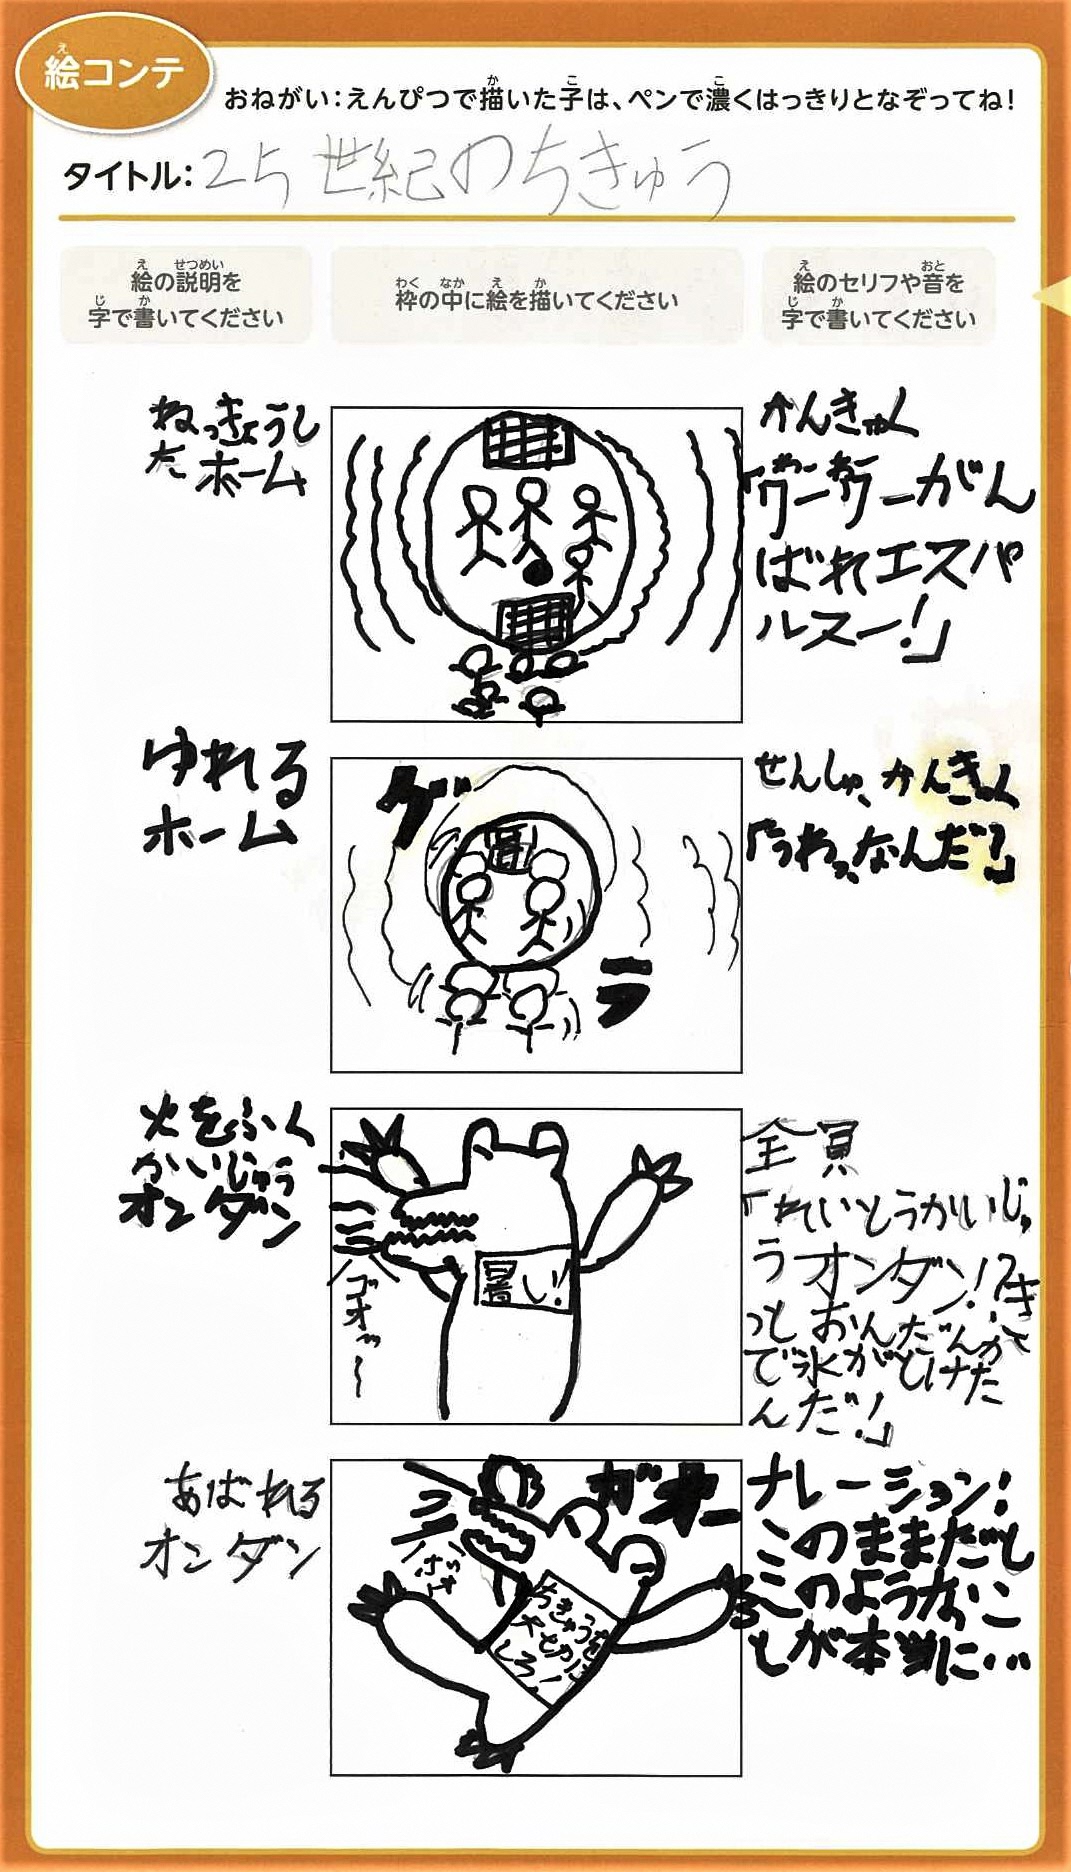 絵コンテ
おねがい：えんぴつで描いた子は、ペンで濃くはっきりとなぞってね！
タイトル：25世紀のちきゅう
絵の説明を
字で書いてください
枠の中に絵を描いてください
絵のセリフや音を
字で書いてください
ねっきょうし
たホーム
かんきゃく
「ワーワーがん
ばれエスパ
ルスー！」
ゆれる
ホーム
グ
ラ
せんしゅ、かんきゃく
「うわっ、なんだ？」
火をふく
かいじゅう
オンダン
ゴオッ〜
暑い！
全員
「れいとうかいじゅ
うオンダン！？き
っとおんだんか
で氷がとけた
んだ！」
あばれる
オンダン
ガオー
ちきゅうを
大切に
しろ！
ナレーション！
このままだと
このようなこ
とが本当に…